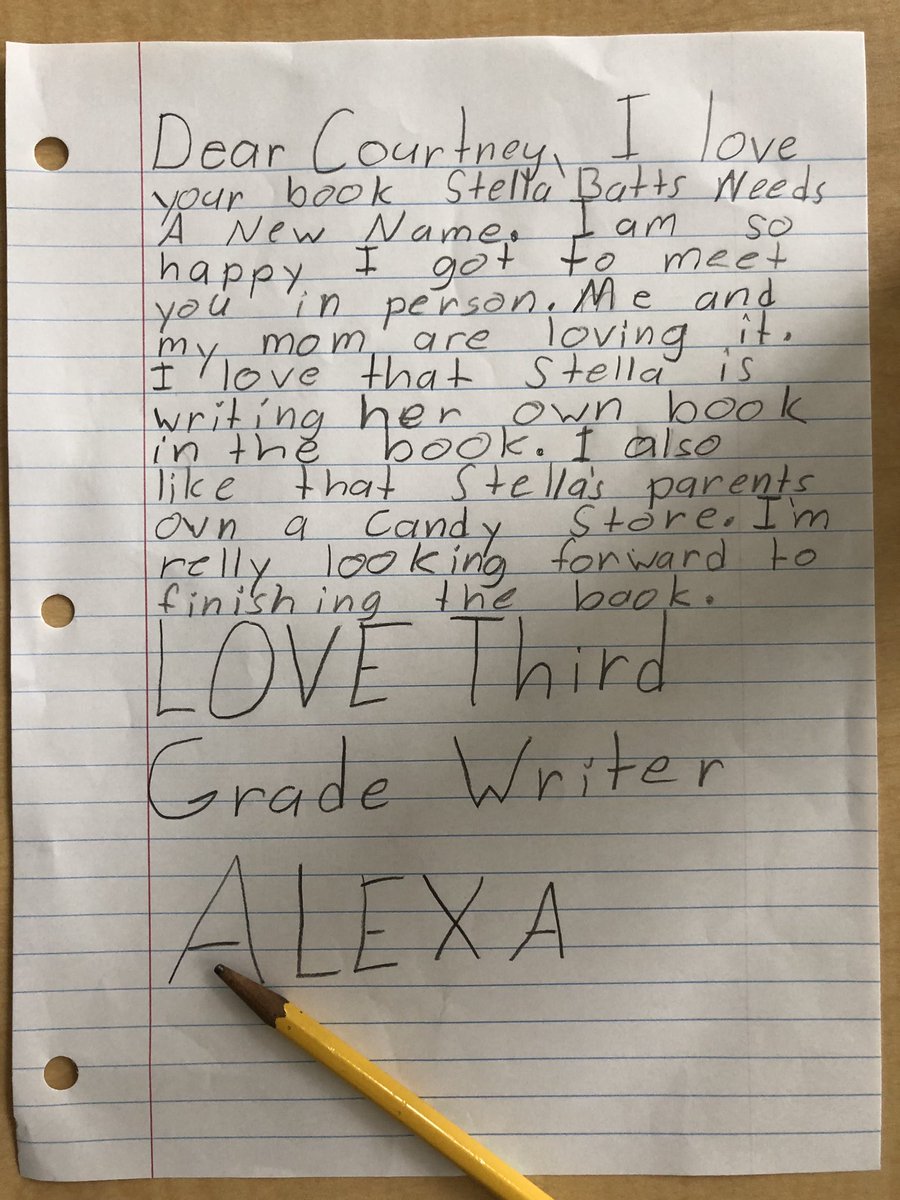 Dear Courtney, I love
your book Stella Batts Needs
A New Name. I am so
happy I got to meet
you in person. Me and
my mom are loving it.
I love that Stella is
writing her own book
in the book. I also
like that Stella's parents
own a Candy Store. I'm
relly looking forward to
finishing the book.
LOVE Third
Grade Writer
ALEXA